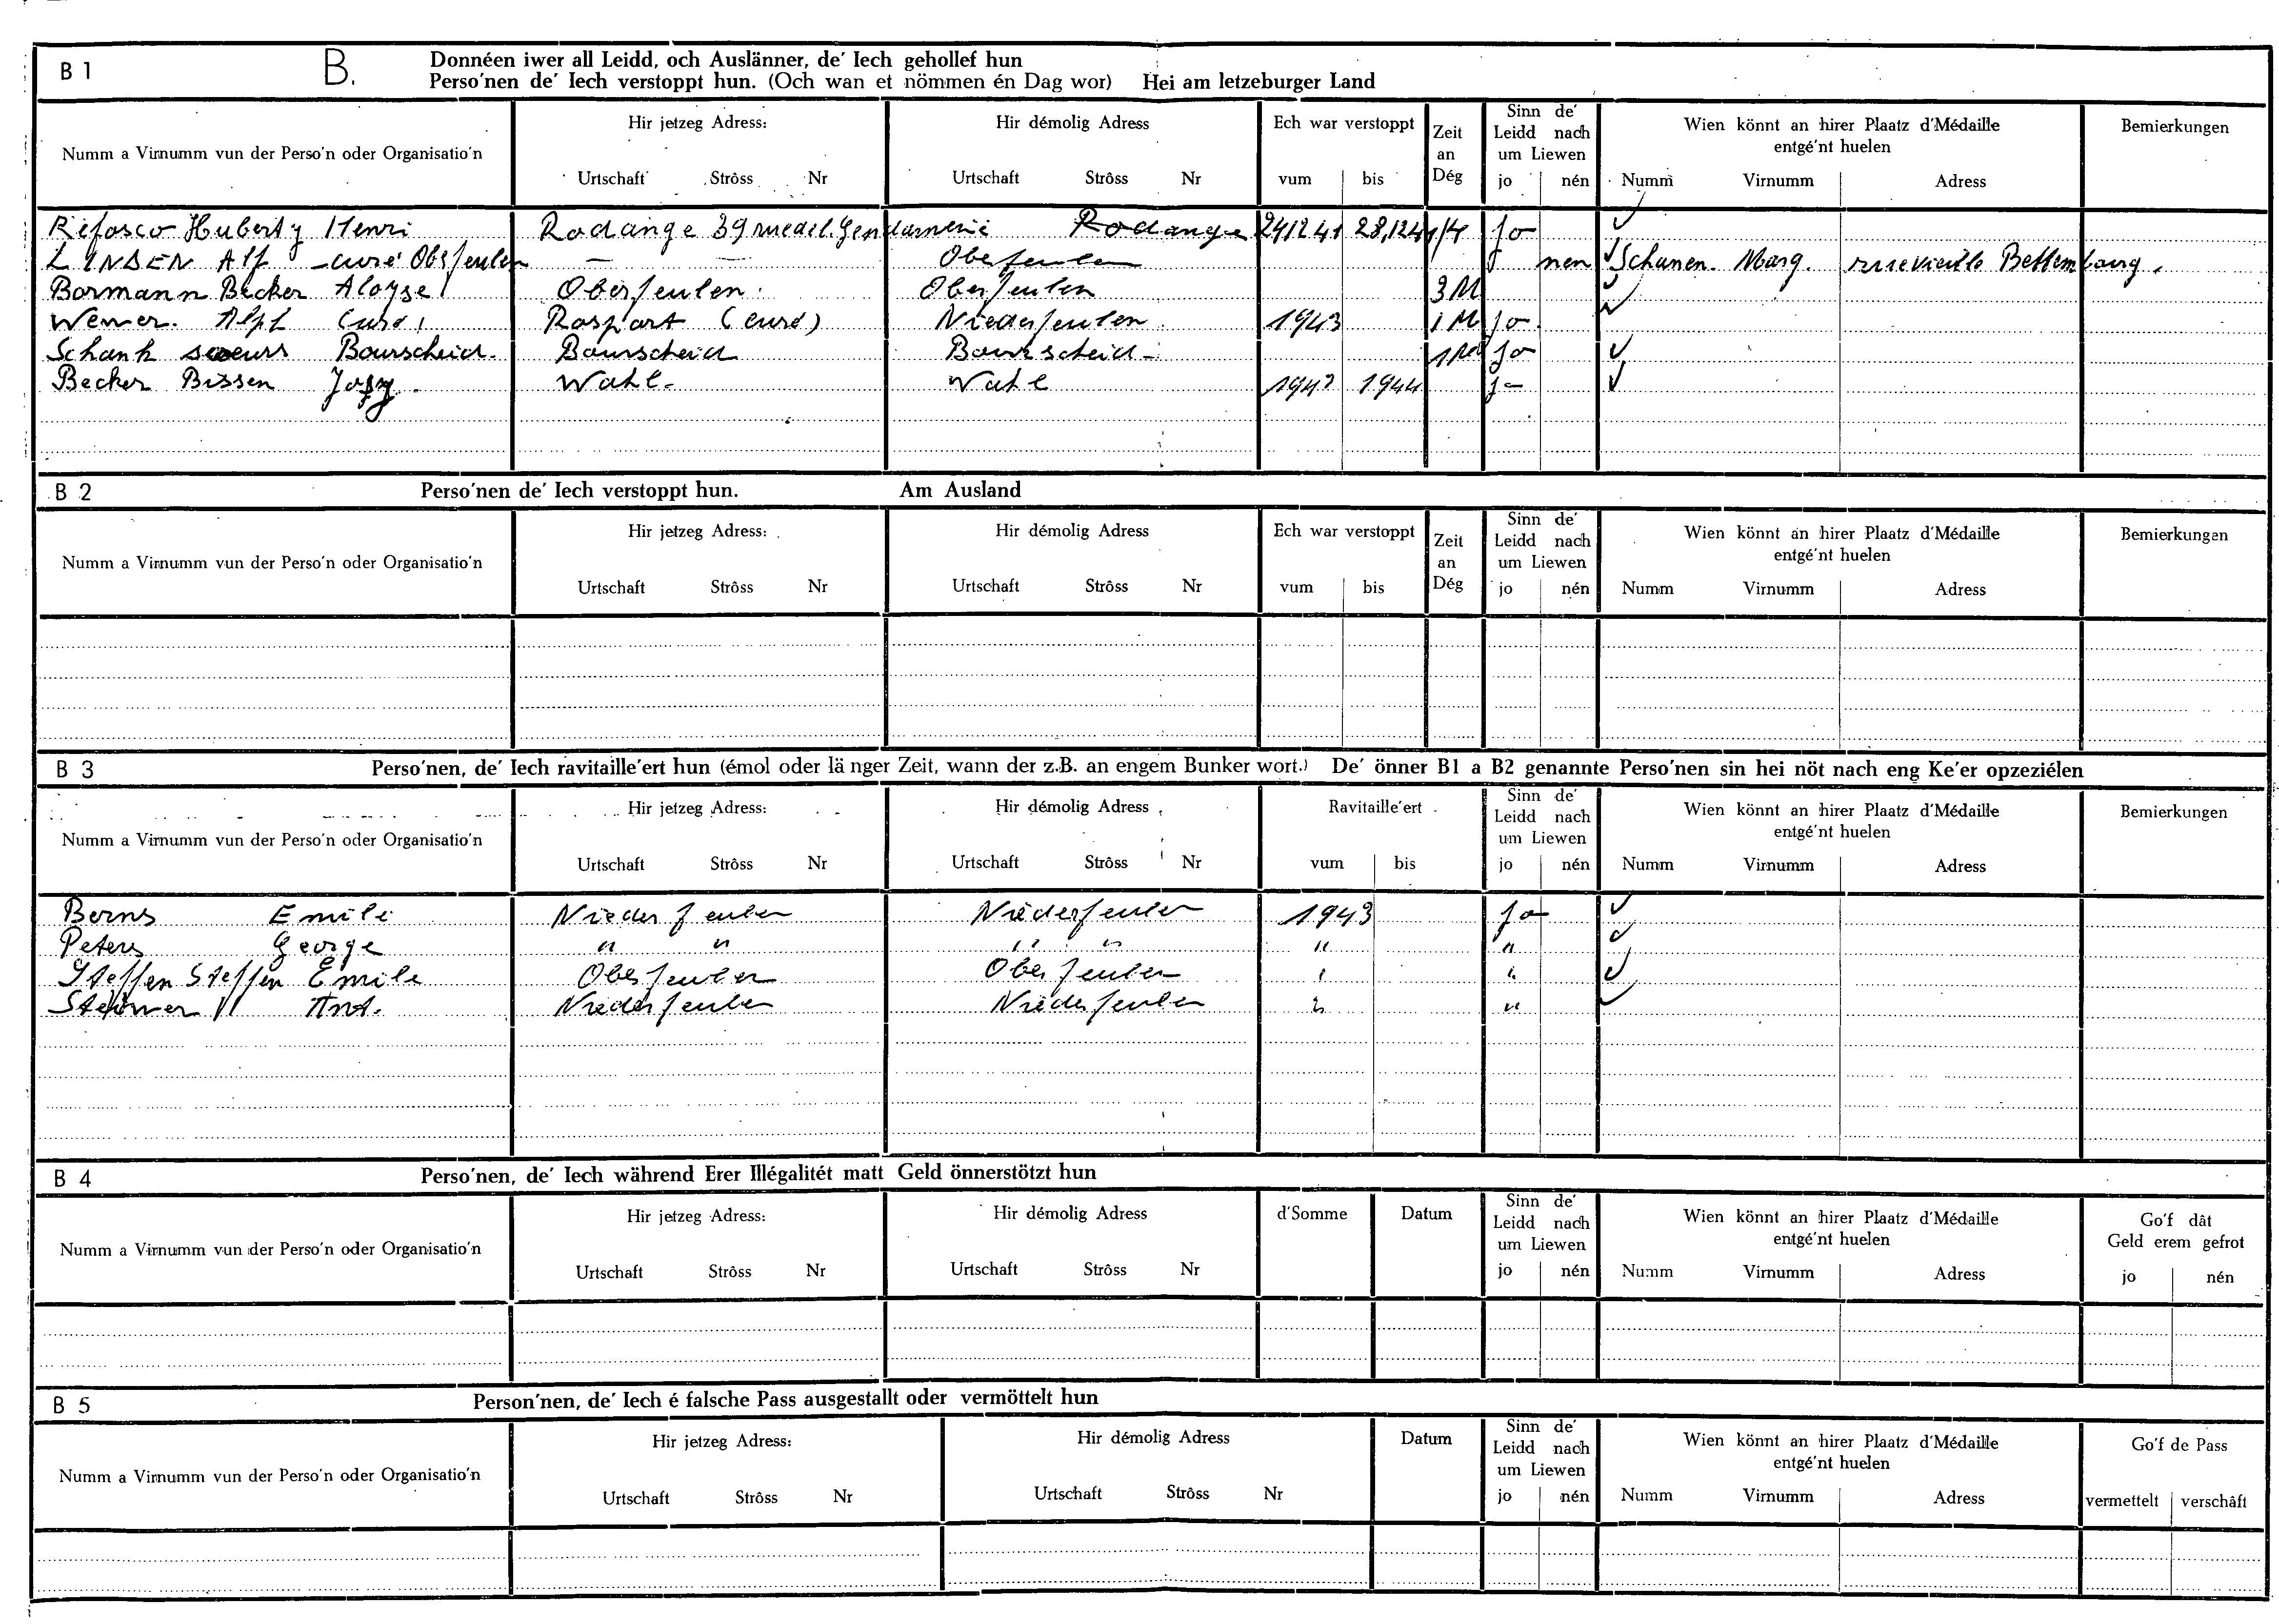 B 1 B. Donnéen iwer all Leidd, och Auslänner, de' Iech gehollef hun
Perso'nen de' Iech verstoppt hun. (Och wan et nömmen én Dag wor) Hei am letzeburger Land
Numm a Virnumm vun der Perso'n oder Organisatio'n
Hir jetzeg Adress:
Urtschaft Strôss Nr
Hir démolig Adress
Urtschaft Strôss Nr
Ech war verstoppt
vum bis
Zeit
an
Dég
Sinn de'
Leidd nach
um Liewen
jo nén
Wien könnt an hirer Plaatz d'Médaille
entgé'nt huelen
Numm Virnumm Adress
Bemierkungen
Refosco Huberty Henri Rodange 39 rue de l. Gendarmerie Rodange 241241 28,1241 Jo
LINDEN Alf - curé Obfeulen — — Oberfeulen nen Schanen. Marg. rue vieille Bettembourg.
Bormann Becker Aloyse Oberfeulen. Oberfeulen 3M
Wemer. Alph Curé, Rosport (curé) Niederfeulen. 1943 1M jo
Schank soeurs Bourscheid. Bourscheid Bourscheid 1M Jo
Becker Bissen Josy Wahl. Wahl 1943 1944 jo
B 2 Perso'nen de' Iech verstoppt hun. Am Ausland
Numm a Virnumm vun der Perso'n oder Organisatio'n
Hir jetzeg Adress:
Urtschaft Strôss Nr
Hir démolig Adress
Urtschaft Strôss Nr
Ech war verstoppt
vum bis
Zeit
an
Dég
Sinn de'
Leidd nach
um Liewen
jo nén
Wien könnt an hirer Plaatz d'Médaille
entgé'nt huelen
Numm Virnumm Adress
Bemierkungen
B 3 Perso'nen, de' Iech ravitaille'ert hun (émol oder länger Zeit, wann der z.B. an engem Bunker wort.) De' önner B1 a B2 genannte Perso'nen sin hei nöt nach eng Ke'er opzeziélen
Numm a Virnumm vun der Perso'n oder Organisatio'n
Hir jetzeg Adress:
Urtschaft Strôss Nr
Hir démolig Adress
Urtschaft Strôss Nr
Ravitaille'ert
vum bis
Sinn de'
Leidd nach
um Liewen
jo nén
Wien könnt an hirer Plaatz d'Médaille
entgé'nt huelen
Numm Virnumm Adress
Bemierkungen
Berns Emile Niederfeulen Niederfeulen 1943 Jo
Peters George " " " " " "
Steffen Steffen Emile Oberfeulen Oberfeulen " "
Ant. Niederfeulen Niederfeulen " "
B 4 Perso'nen, de' Iech während Erer Illégalitét matt Geld önnerstötzt hun
Numm a Virnumm vun der Perso'n oder Organisatio'n
Hir jetzeg Adress:
Urtschaft Strôss Nr
Hir démolig Adress
Urtschaft Strôss Nr
d'Somme
Datum
Sinn de'
Leidd nach
um Liewen
jo nén
Wien könnt an hirer Plaatz d'Médaille
entgé'nt huelen
Numm Virnumm Adress
Go'f dât
Geld erem gefrot
jo nén
B 5 Person'nen, de' Iech é falsche Pass ausgestallt oder vermöttelt hun
Numm a Virnumm vun der Perso'n oder Organisatio'n
Hir jetzeg Adress:
Urtschaft Strôss Nr
Hir démolig Adress
Urtschaft Strôss Nr
Datum
Sinn de'
Leidd nach
um Liewen
jo nén
Wien könnt an hirer Plaatz d'Médaille
entgé'nt huelen
Numm Virnumm Adress
Go'f de Pass
vermettelt verschâft